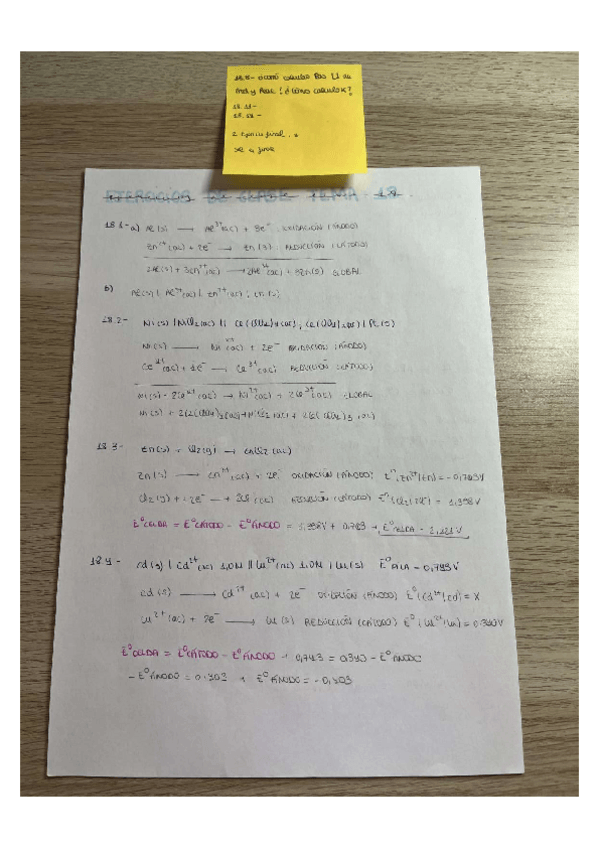 18.1-
18.18-
se a fine
EJERCICIOS DE CLASE TEMA 18
18.1-a) Al(s) → Al³⁺(ac) + 3e⁻ OXIDACIÓN (ÁNODO)
Zn²⁺(ac) + 2e⁻ → Zn(s) REDUCCIÓN (CÁTODO)
2Al(s) + 3Zn²⁺(ac) → 2Al³⁺(ac) + 3Zn(s) GLOBAL
b)
Al(s) | Al³⁺(ac) | Zn²⁺(ac) | Zn(s)
18.2- Ni(s) | NiCl₂(ac) || Ce(ClO₄)₄(ac), Ce(ClO₄)₃(ac) | Pt(s)
Ni(s) → Ni²⁺(ac) + 2e⁻ OXIDACIÓN (ÁNODO)
Ce⁴⁺(ac) + 1e⁻ → Ce³⁺(ac) REDUCCIÓN (CÁTODO)
Ni(s) + 2Ce⁴⁺(ac) → Ni²⁺(ac) + 2Ce³⁺(ac) GLOBAL
18.3- Zn(s) + Cl₂(g) → ZnCl₂(ac)
Zn(s) → Zn²⁺(ac) + 2e⁻ OXIDACIÓN (ÁNODO) E°(Zn²⁺/Zn) = -0,763V
Cl₂(g) + 2e⁻ → 2Cl⁻(ac) REDUCCIÓN (CÁTODO) E°(Cl₂/Cl⁻) = 1,358V
E°CELDA = E°CÁTODO - E°ÁNODO = 1,358V + 0,763 → E°CELDA = 2,121V
18.4- Cd(s) | Cd²⁺(ac) 1,0M || Cu²⁺(ac) 1,0M | Cu(s) E°PILA = 0,743V
Cd(s) → Cd²⁺(ac) + 2e⁻ OXIDACIÓN (ÁNODO) E°(Cd²⁺/Cd) = X
Cu²⁺(ac) + 2e⁻ → Cu(s) REDUCCIÓN (CÁTODO) E°(Cu²⁺/Cu) = 0.340V
E°CELDA = E°CÁTODO - E°ÁNODO → 0,743 = 0,340 - E°ÁNODO
- E°ÁNODO = 0.403 → E°ÁNODO = -0,403